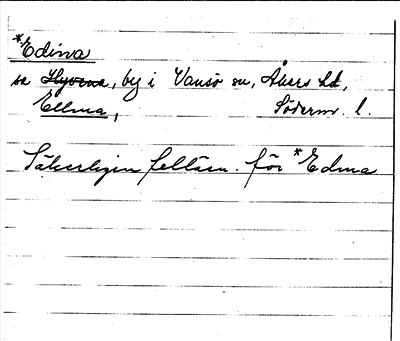 *Edinva
se Hyvena, by i Vansö sn, Åkers hd,
Ellma, Söderm. l.
Säkerligen felläsn. för *Edma